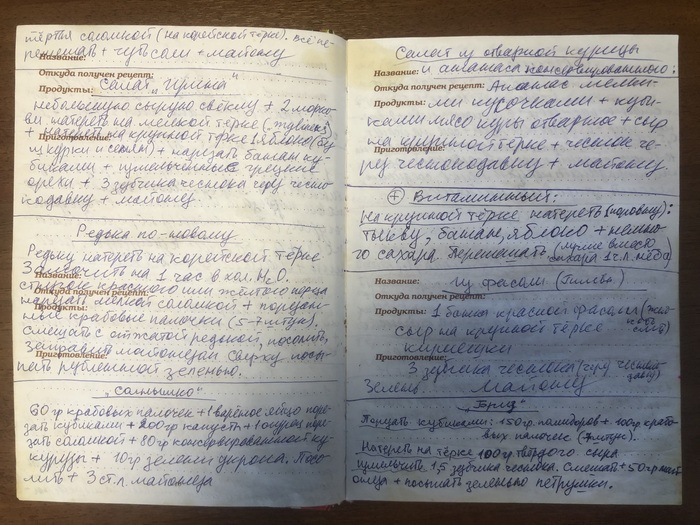 тёртая соломкой (на корейской тёрке). Всё пе-
ремешать + чуть соли + майонез
Название:
Откуда получен рецепт:
Продукты: Салат „Ирина"
небольшую сырую свёклу + 2 морко-
ви натереть на мелкой тёрке
Приготовление:
+ натереть на крупной тёрке яблоко (без
шкурки и семян) + нарезать батат ку-
биками + измельчённые грецкие
орехи + 3 зубчика чеснока через чесно-
кодавку + майонез.
Редька по-новому
Редьку натереть на корейской тёрке
Замочить на 1 час в хол. H₂O.
Название:
стручок красного или жёлтого перца
Откуда получен рецепт:
нарезать мелкой соломкой + порезан-
Продукты:
ные крабовые палочки (5-7 штук).
Смешать с отжатой редькой, посолить,
Приготовление:
заправить майонезом. Сверху посы-
пать рубленной зеленью.
„Солнышко"
60 гр крабовых палочек + 1 варёное яйцо поре-
зать кубиками + 200 гр капусты + 1 огурец поре-
зать соломкой + 80 гр консервированной ку-
курузы + 10 гр зелени укропа. Посо-
лить + 3 ст. л майонеза
Салат из отварной курицы
Название: и ананаса консервированного:
Откуда получен рецепт: Ананас мелки-
Продукты: ми кусочками + куби-
ками мясо куры отварное + сыр
Приготовление:
на крупной тёрке + чеснок че-
рез чеснокодавку + майонез.
⊕ Витаминный:
На крупной тёрке натереть (поровну):
тыкву, батат, яблоко + немно-
го сахара. Перемешать (лучше вместо
сахара 1 ч. л. мёда)
Название: Из фасоли
Откуда получен рецепт:
Продукты: 1 банка красной фасоли
сыр на крупной тёрке
кириешки
Приготовление:
3 зубчика чеснока (через чеснокодавку)
Зелень. Майонез
„Бриз"
Порезать кубиками: 150 гр. помидоров + 100 гр крабо-
вых палочек
Натереть на тёрке 100 гр твёрдого сыра
измельчить 1,5 зубчика чеснока. Смешать + 50 гр майо-
неза + посыпать зеленью петрушки.